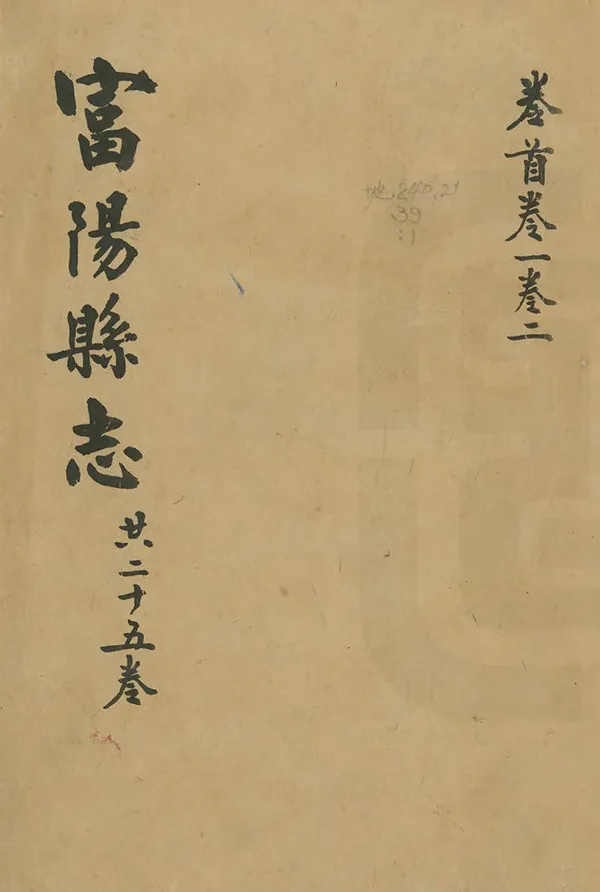 卷首卷一卷二
地.240.29
39
:1
富陽縣志
共二十五卷